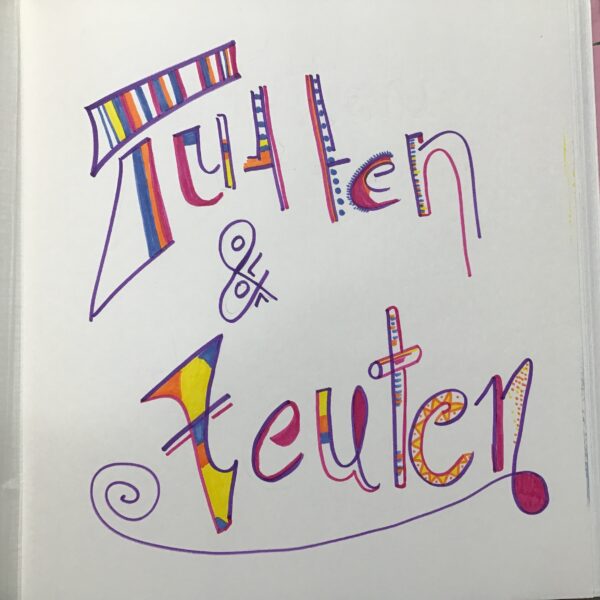 Tutten
&
teuten